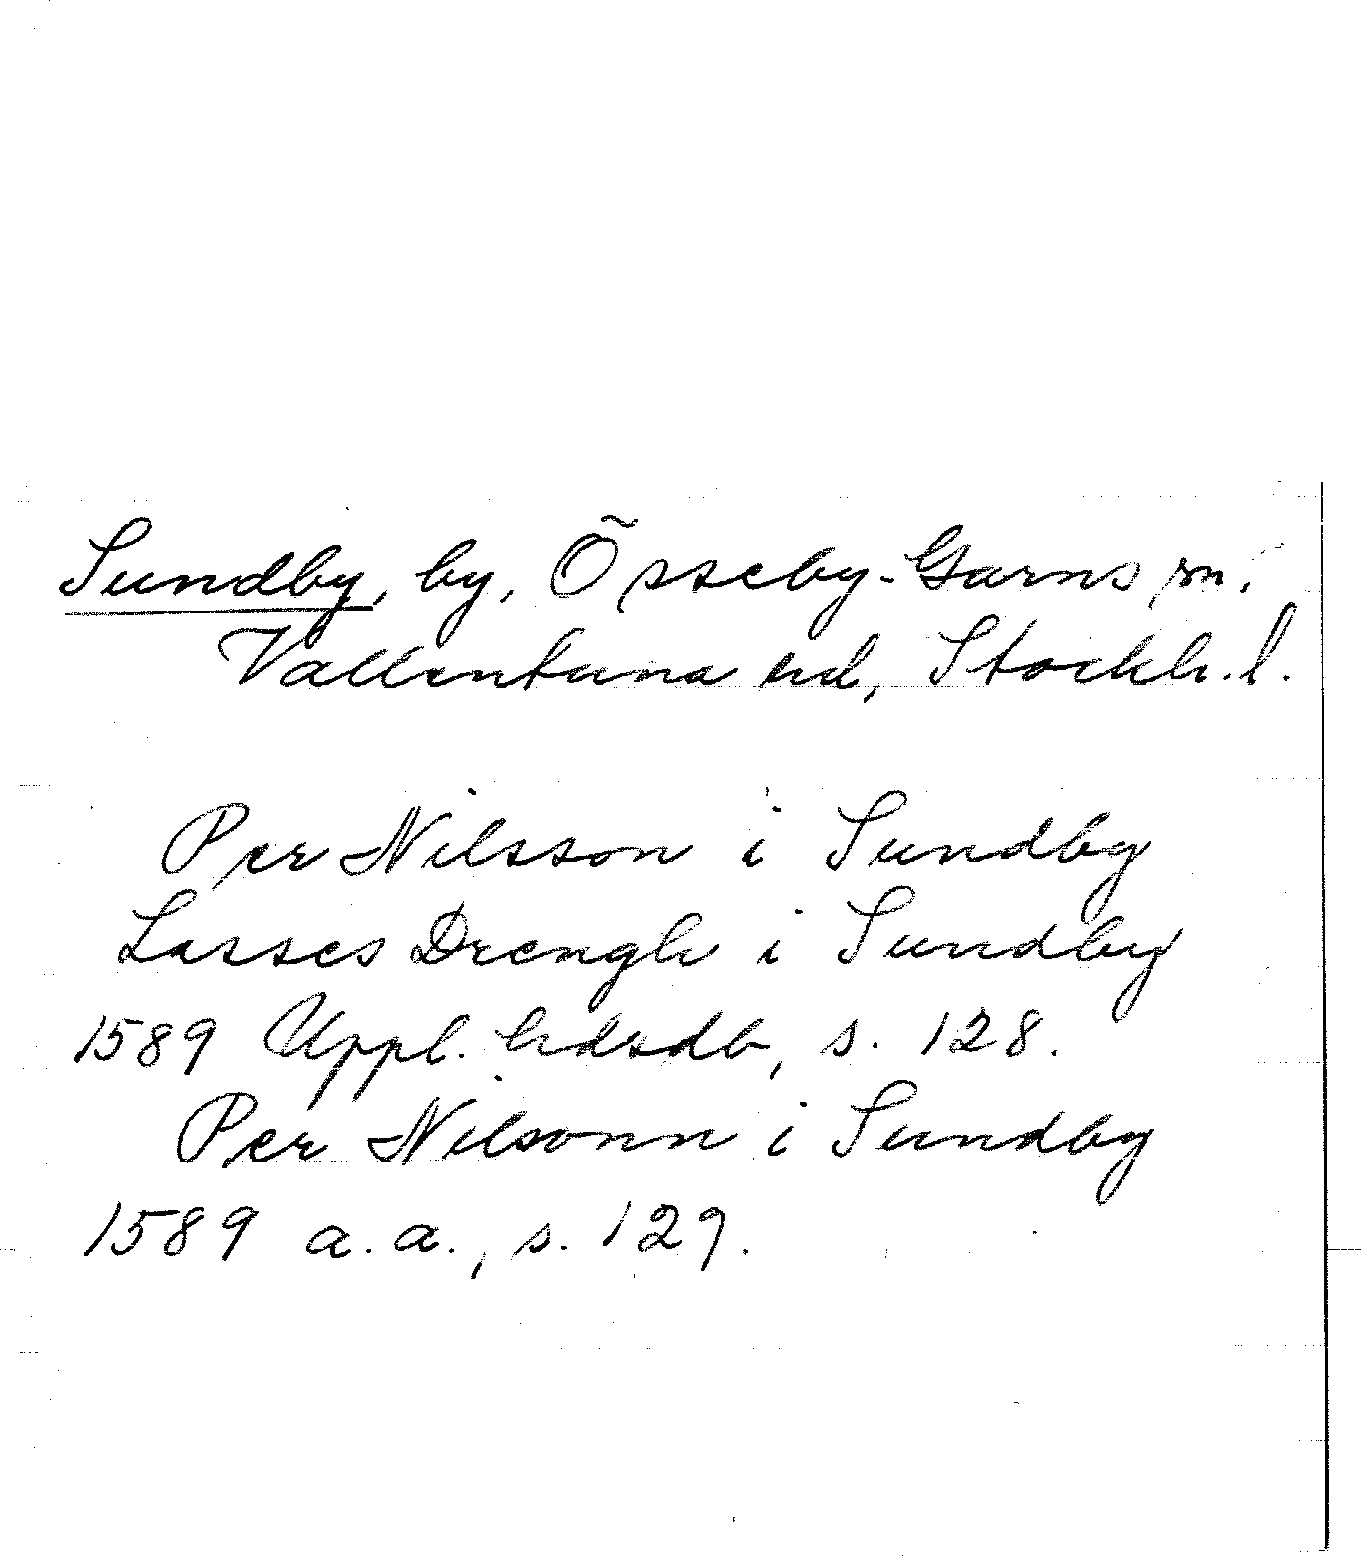 Sundby, by, Össeby-Garns sn.
Vallentuna hd, Stockh. l.
Per Nilsson i Sundby
Lasses Drengh i Sundby
1589 Uppl. hdsdb, s. 128.
Per Nilsonn i Sundby
1589 a.a., s. 129.